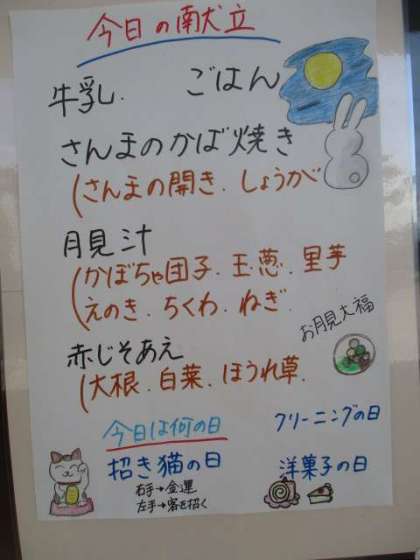 今日の献立
牛乳. ごはん
さんまのかば焼き
(さんまの開き.しょうが
月見汁
(かぼちゃ団子.玉葱.里芋
えのき.ちくわ.ねぎ.
お月見大福
赤じそあえ
(大根.白菜.ほうれ草.
今日は何の日
クリーニングの日
招き猫の日
右手→金運
左手→客を招く
洋菓子の日